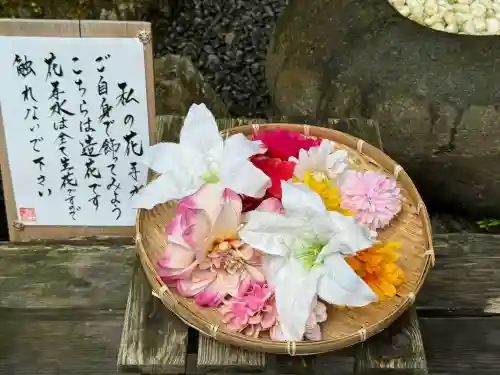 私の花手水
ご自身で飾ってみてね
こちらは造花です
花手水は全て生花ですので
触れないで下さい